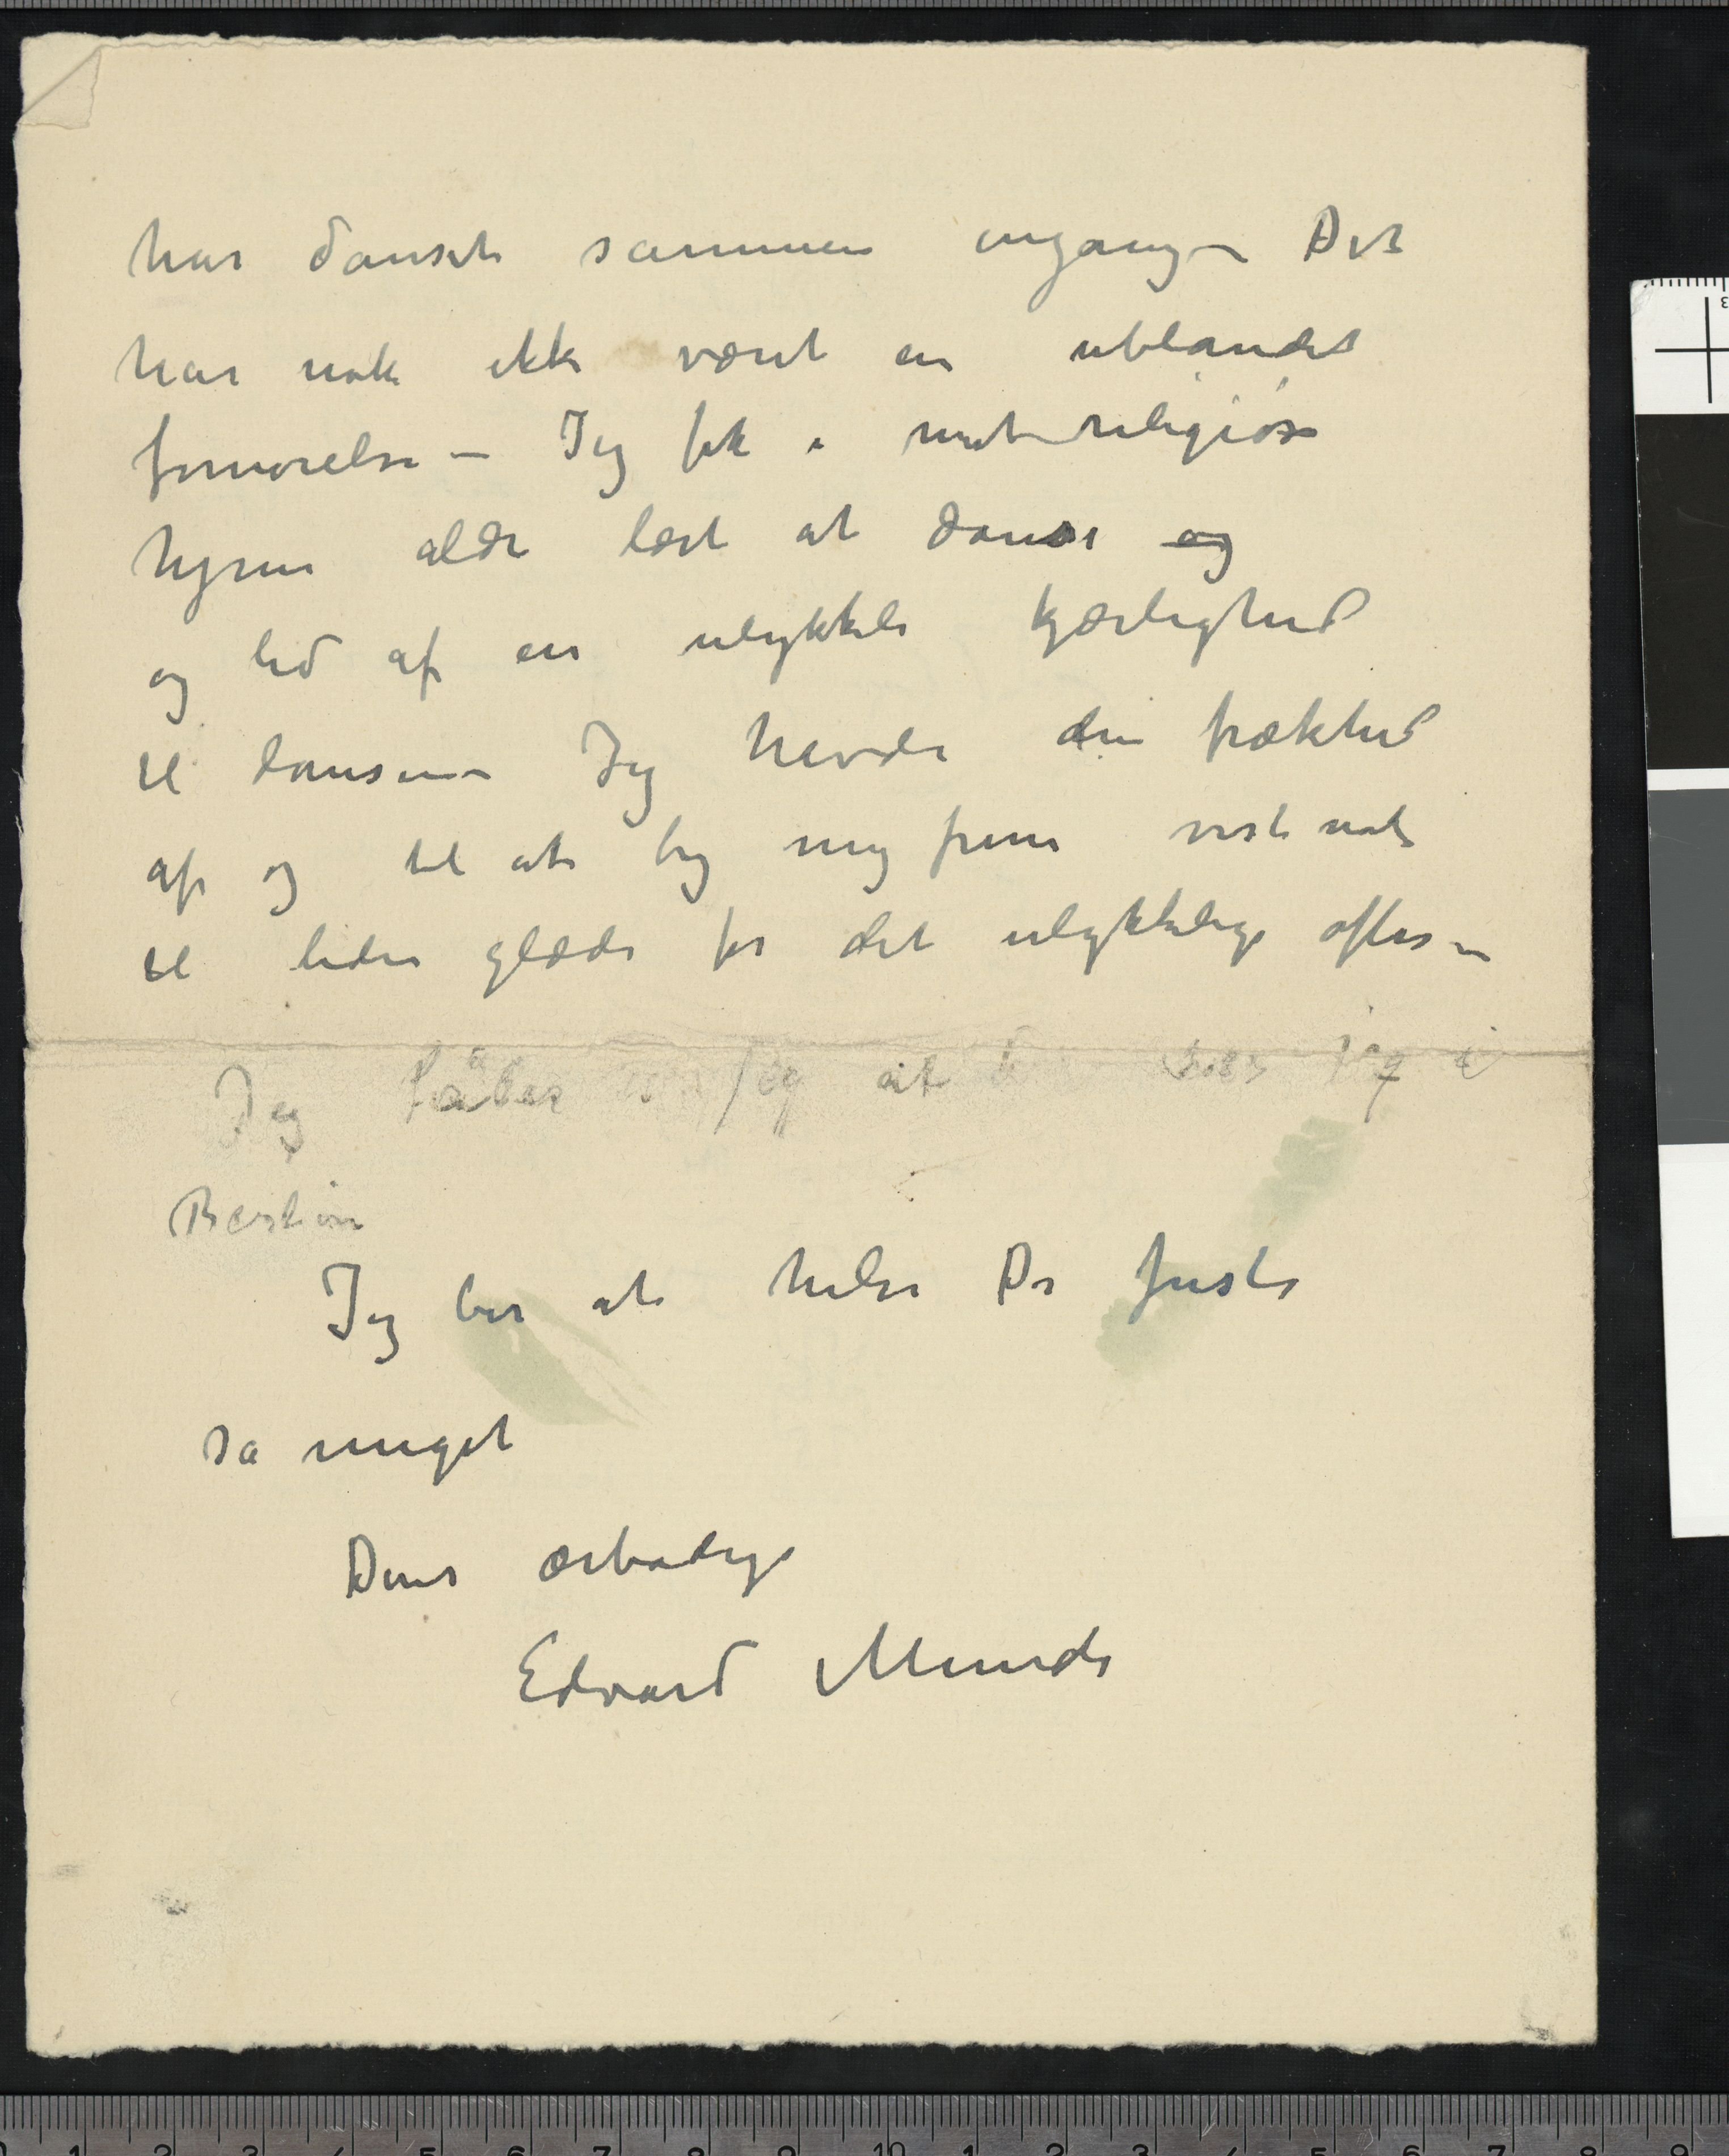 har danset sammen engang – Det
har nok ikke været en ublandet
fornøielse – Jeg fik i mit religiøse
hjem aldr lært at danse og
og led af en ulykkelig kjærlighed
til dansen – Jeg havde den frækhed
af og til at by mig frem vist nok
til liden glæde for det ulykkelige offer –
Jeg håber jeg at jeg i
Berlin
Jeg ber at hilse Dr Justi
så meget
Deres ærbødige
Edvard Munch